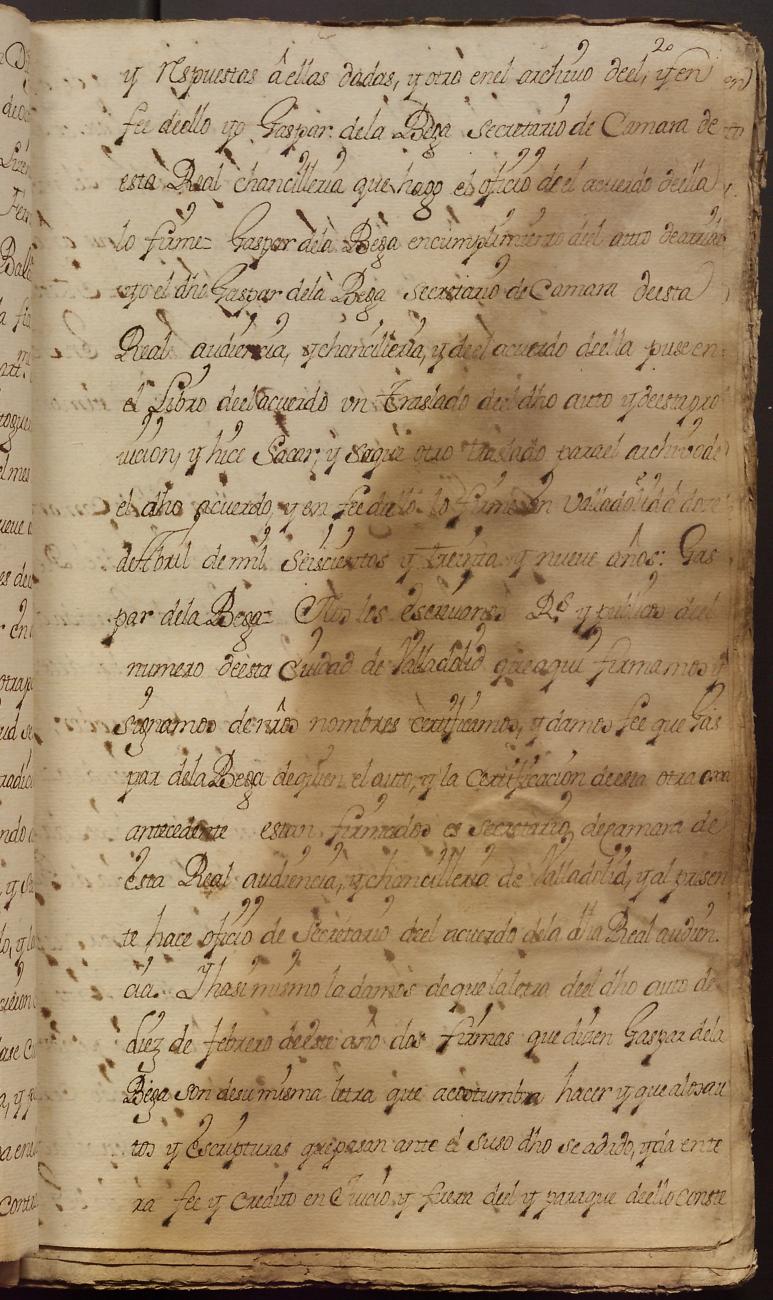 20
y respuestas â ellas dadas, y otro en el archiuo deel, y en
fee deello yo Gaspar dela Bega secretario de Camara de
esta Real chancilleria que hago el oficio de el acuerdo deella
lo firme= Gaspar dela Bega en cumplimiento del auto de arriba
yo el dho Gaspar dela Bega secretario de Camara deesta
Real audiencia, y chancilleria, y de el acuerdo deella puse en
el Libro deel acuerdo vn traslado deel dho auto y deesta pro
uicion, y hice Sacar, y saque otro traslado para el archiuo de
el dho acuerdo, y en fee dello lo firme en Valladolid â doce
de Abril de mil seiscientos y treinta y nueve años: Gas
par dela Bega= Nos los escriuanos Rs y publicos deel
numero deesta Ciudad de Valladolid que aqui firmamos y
signamos de nros nombres certificamos, y damos fee que Gas
par dela Bega de quien el auto, y la certificacion deesta otra
antecedente estan firmados es secretario de camara de
esta Real audiencia, y chancilleria de Valladolid, y al presen
te hace oficio de Secretario deel acuerdo dela dha Real audien
cia. Y hasi mismo la damos de que la letra deel dho auto de
diez de febrero deeste año dos firmas que dizen Gaspar dela
Bega son desu misma letra que acostumbra hacer y que a los au
tos y escripturas que pasan ante el suso dho se a dado, y da ente
ra fee y credito en Juicio, y fuera deel y para que deello conste